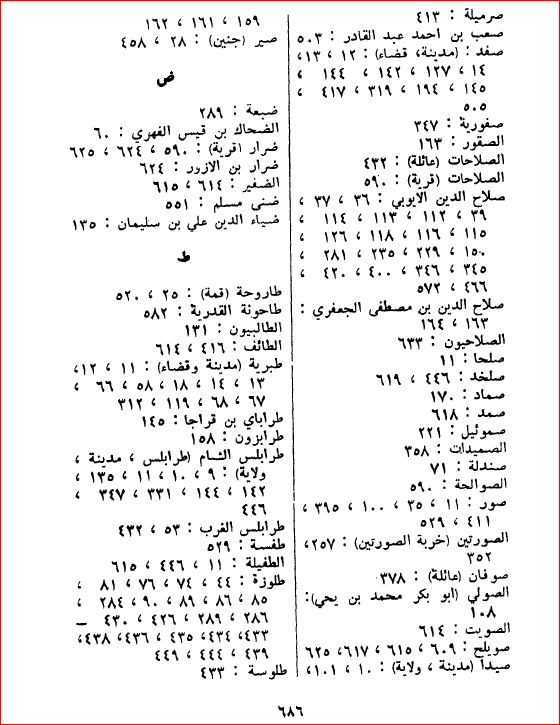 صرميلة : ٤١٣
صعب بن احمد عبد القادر : ٥٠٣
صفد : (مدينة، قضاء) : ١٢ ، ١٣،
١٤ ، ١٢٧ ، ١٤٢ ، ١٤٤ ،
١٤٥ ، ١٩٤ ، ٣١٩ ، ٤١٧ ،
٥٠٥
صفورية : ٣٤٧
الصقور : ١٦٣
الصلاحات (عائلة) : ٤٣٢
الصلاحات (قرية) : ٥٩٠
صلاح الدين الايوبي : ٣٦ ، ٣٧ ،
٣٩ ، ١١٢ ، ١١٣ ، ١١٤ ،
١١٥ ، ١١٦ ، ١١٨ ، ١٢٦ ،
١٥٠ ، ٢٢٩ ، ٢٣٥ ، ٢٨١ ،
٣٤٥ ، ٣٤٦ ، ٤٠٠ ، ٤٢٠ ،
٤٦٦ ، ٥٧٢
صلاح الدين بن مصطفى الجعفري :
١٦٣ ، ١٦٤
الصلاحيون : ٦٣٣
صلحا : ١١
صلخد : ٤٤٦ ، ٦١٩
صماد : ١٧٠
صمد : ٦١٨
صموئيل : ٢٢١
الصميدات : ٣٥٨
صندلة : ٧١
الصوالحة : ٥٩٠
صور : ١١ ، ٣٥ ، ١٠٠ ، ٣٩٥ ،
٤١١ ، ٥٢٩
الصورتين (خربة الصورتين) : ٢٥٧،
٣٥٢
صوفان (عائلة) : ٣٧٨
الصولي (ابو بكر محمد بن يحي):
١٠٨
الصويت : ٦١٤
صويلح : ٦٠٩ ، ٦١٥ ، ٦١٧، ٦٢٥
صيدا (مدينة ، ولاية) : ١٠ ، ١٠١،
١٥٩ ، ١٦١ ، ١٦٢
صير (جنين) : ٢٨ ، ٤٥٨
ض
ضبعة : ٢٨٩
الضحاك بن قيس الفهري : ٦٠
ضرار (قرية) : ٥٩٠ ، ٦٢٤ ، ٦٢٥
ضرار بن الازور : ٦٢٤
الضفير : ٦١٤ ، ٦١٥
ضنى مسلم : ٥٥١
ضياء الدين علي بن سليمان : ١٣٥
ط
طاروحة (قمة) : ٢٥ ، ٥٢٠
طاحونة القدرية : ٥٨٢
الطالبيون : ١٣١
الطائف : ٤١٦ ، ٦١٤
طبرية (مدينة وقضاء) : ١١ ، ١٢،
١٣ ، ١٤ ، ١٨ ، ٥٨ ، ٦٦ ،
٦٧ ، ٦٨ ، ١١٩ ، ٣١٢
طراباي بن قراجا : ١٤٥
طرابزون : ١٥٨
طرابلس الشام (طرابلس ، مدينة ،
ولاية) : ٩ ، ١٠ ، ١١ ، ١٣٥ ،
١٤٢ ، ١٤٤ ، ٣٣١ ، ٣٤٧ ،
٤٤٦
طرابلس الغرب : ٥٣ ، ٤٣٢
طفسة : ٥٢٩
الطفيلة : ١١ ، ٤٤٦ ، ٦١٥
طلوزة : ٤٤ ، ٧٤ ، ٧٦ ، ٨١ ،
٨٥ ، ٨٦ ، ٨٩ ، ٩٠ ، ٢٨٤ ،
٢٨٦ ، ٢٨٩ ، ٤٢٦ ، ٤٣٠ –
٤٣٣، ٤٣٤، ٤٣٥ ، ٤٣٦، ٤٣٨،
٤٣٩ ، ٤٤٤ ، ٤٤٩
طلوسة : ٤٣٣
٦٨٦